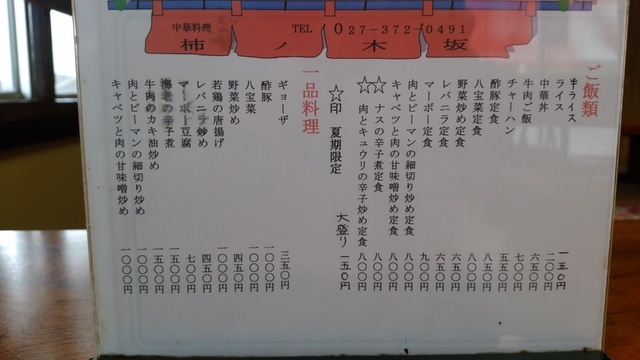 中華料理 TEL 027-372-0491
柿ノ木坂
ご飯類
半ライス 一五〇円
ライス 二〇〇円
中華丼 六五〇円
牛肉ご飯 七〇〇円
チャーハン 五五〇円
酢豚定食 八五〇円
八宝菜定食 八〇〇円
野菜炒め定食 六五〇円
レバニラ定食 六五〇円
マーボー定食 九〇〇円
肉とピーマンの細切り炒め定食 八〇〇円
キャベツと肉の甘味噌炒め定食 八〇〇円
☆ナスの辛子煮定食 八〇〇円
☆肉とキュウリの辛子炒め定食 八〇〇円
☆印 夏期限定 大盛り 一五〇円
一品料理
ギョーザ 三五〇円
酢豚 一〇〇〇円
八宝菜 一〇〇〇円
野菜炒め 四五〇円
若鶏の唐揚げ 一〇〇〇円
レバニラ炒め 四五〇円
マーボー豆腐 七〇〇円
海老の辛子煮 一五〇〇円
牛肉のカキ油炒め 一五〇〇円
肉とピーマンの細切り炒め 一〇〇〇円
キャベツと肉の甘味噌炒め 一〇〇〇円